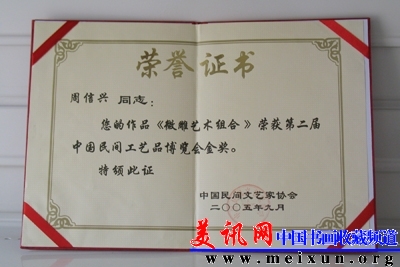 荣誉证书
周信兴 同志：
您的作品《微雕艺术组合》荣获第二届
中国民间工艺品博览会金奖。
特颁此证
中国民间文艺家协会
二〇〇五年九月
美讯网 中国书画收藏频道
www.meixun.org